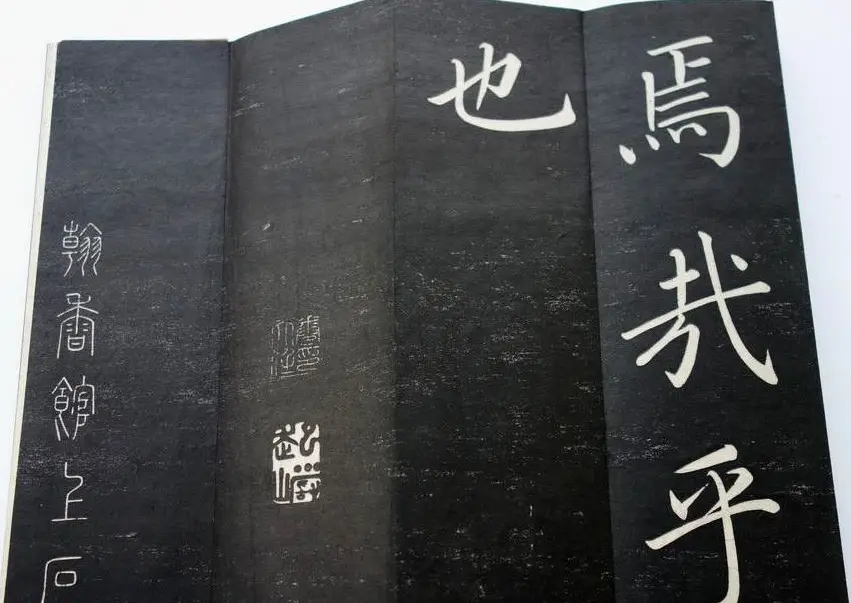 焉哉乎
也
翰香館上石